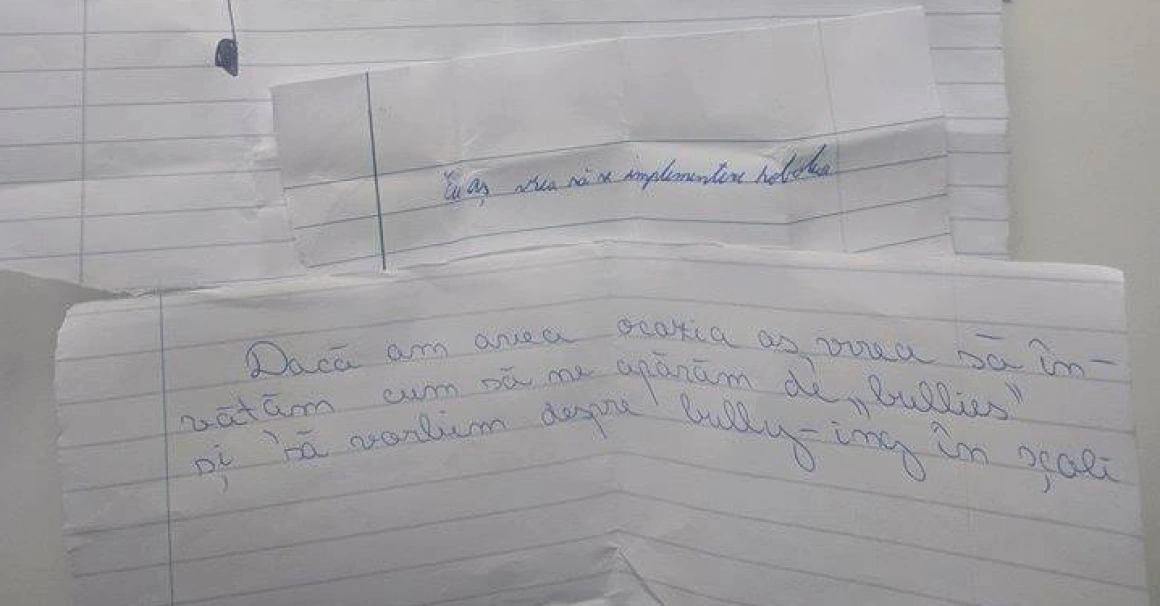 Eu aș vrea să se implementeze
Dacă am avea ocazia aș vrea să în-
vătăm cum să ne apărăm de „bullies"
și să vorbim despre bully-ing în școli